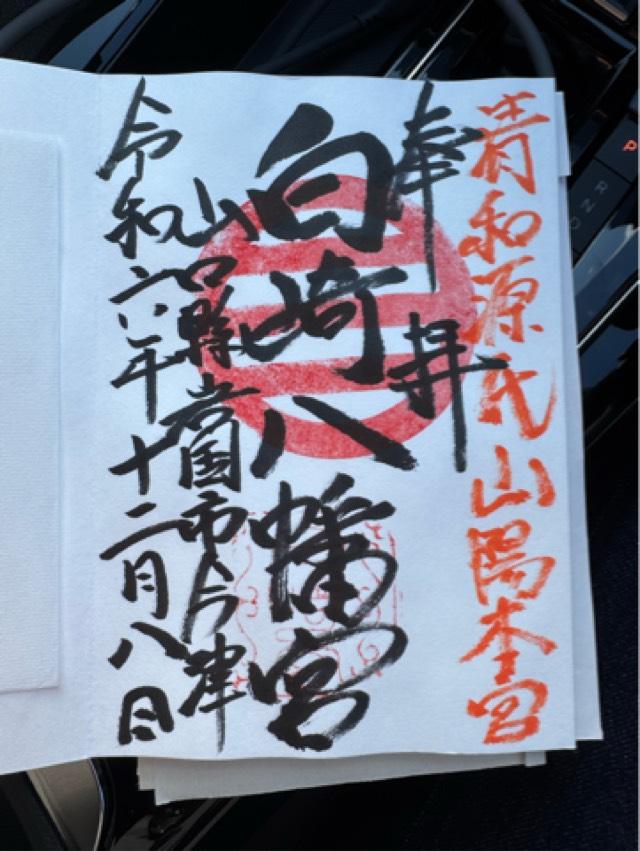 青和源氏山陽本宮
奉拝
白崎八幡宮
山口縣岩国市今津
令和六年十二月八日
P
R
N
D